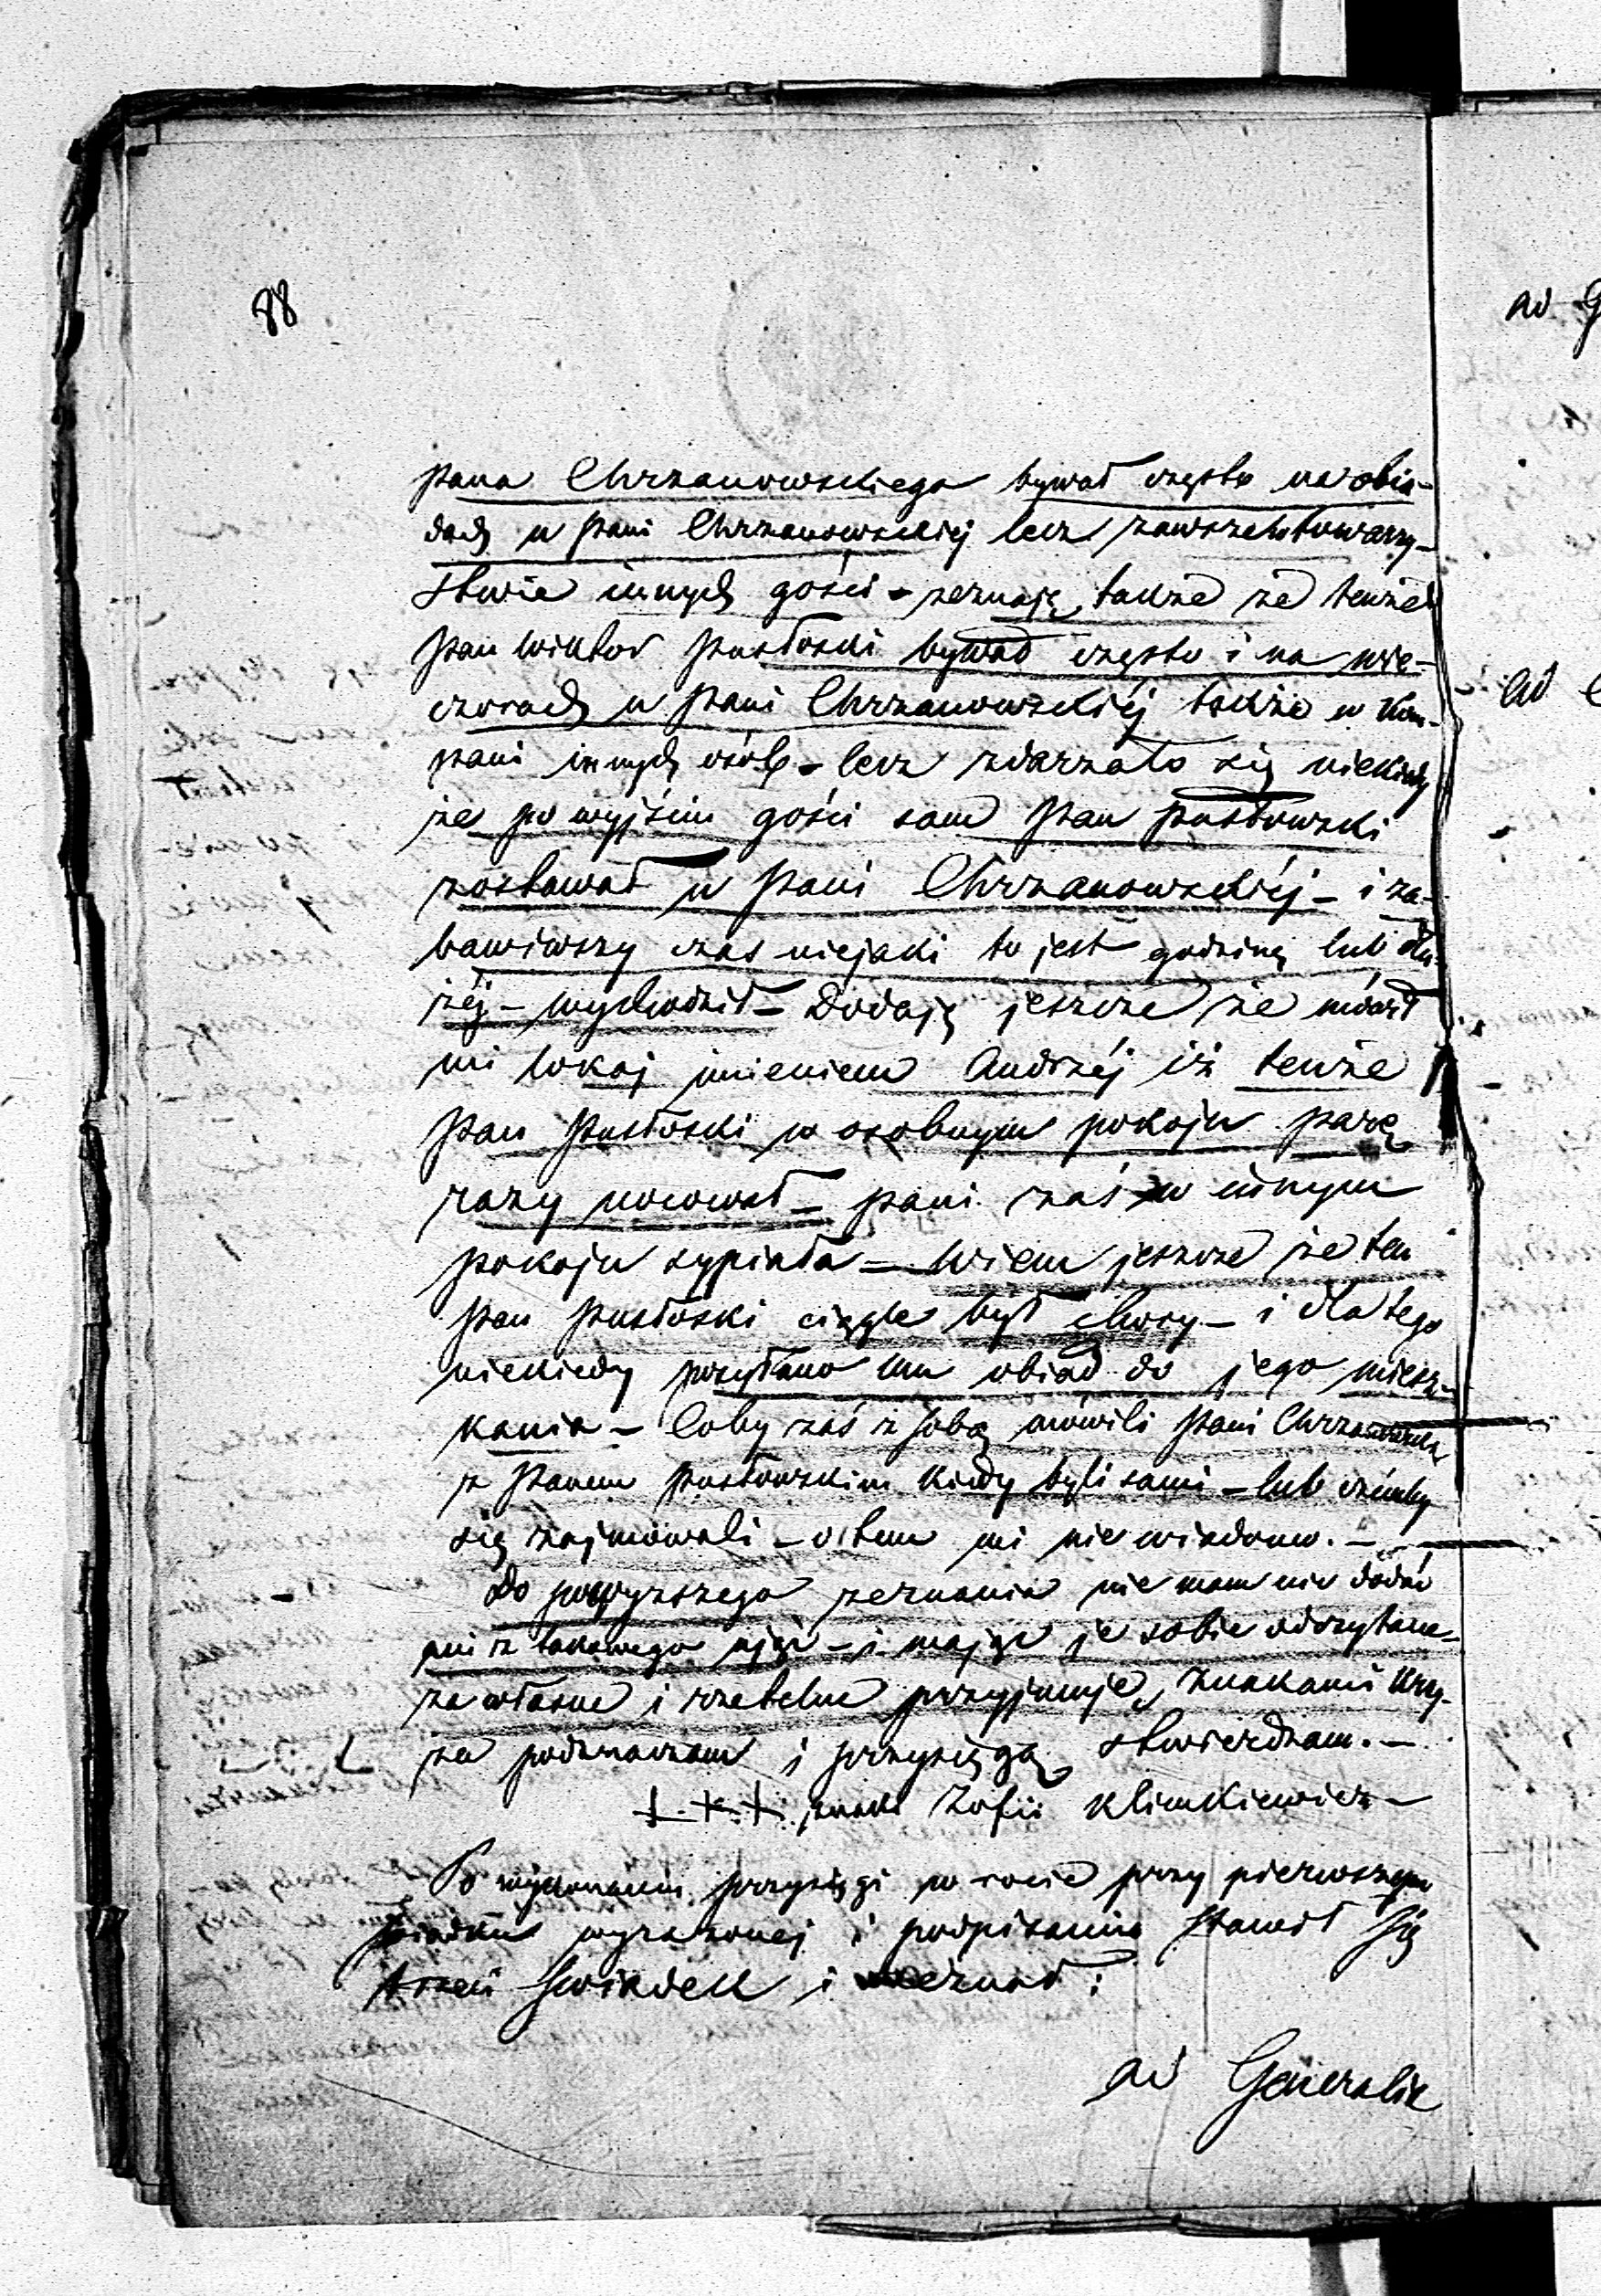 88
pana Chrzanowskiego bywał często na obia-
dach u pani Chrzanowskiej lecz zawsze w towarzy-
stwie innych gości – zeznaję także że tenże
pan Wiktor Pusłoski bywał często i na wie-
czorach u pani Chrzanowskiéj także w kom-
pani innych osób – lecz zdarzało się niekiedy
że po wyjściu gości sam pan Pusłowski
zostawał u pani Chrzanowskiéj – i za-
bawiwszy czas niejaki to jest godzinę lub dłu-
żéj – wychodził – Dodaję jeszcze że mówił
mi lokaj imieniem Andrzéj iż tenże
pan Pusłoski w osobnym pokoju parę
razy nocował – pani zaś w innym
pokoju sypiała – Wiem jeszcze że ten
pan Pusłoski ciągle był chory – i dla tego
niekiedy posyłano mu obiad do jego miesz-
kania – Coby zaś z sobą mówili pani Chrzanowska
z panem Pusłowskim kiedy byli sami – lub czémby
się zajmowali – o tem mi nie wiadomo. –
Do powyższego zeznania nie mam nic dodać
ani z takowego ująć – i mając je sobie odczytane
za własne i rzetelne przyjmuję, znakami krzy-
ża podznaczam i przysięgą stwierdzam. –
+ + + znaki Zofii Klimkiewicz –
Po wykonaniu przysięgi w rocie przy pierwszym
świadku wyrażonej i podpisaniu stawił się
trzeci świadek i zeznał :
ad Generalia
ad G
ad